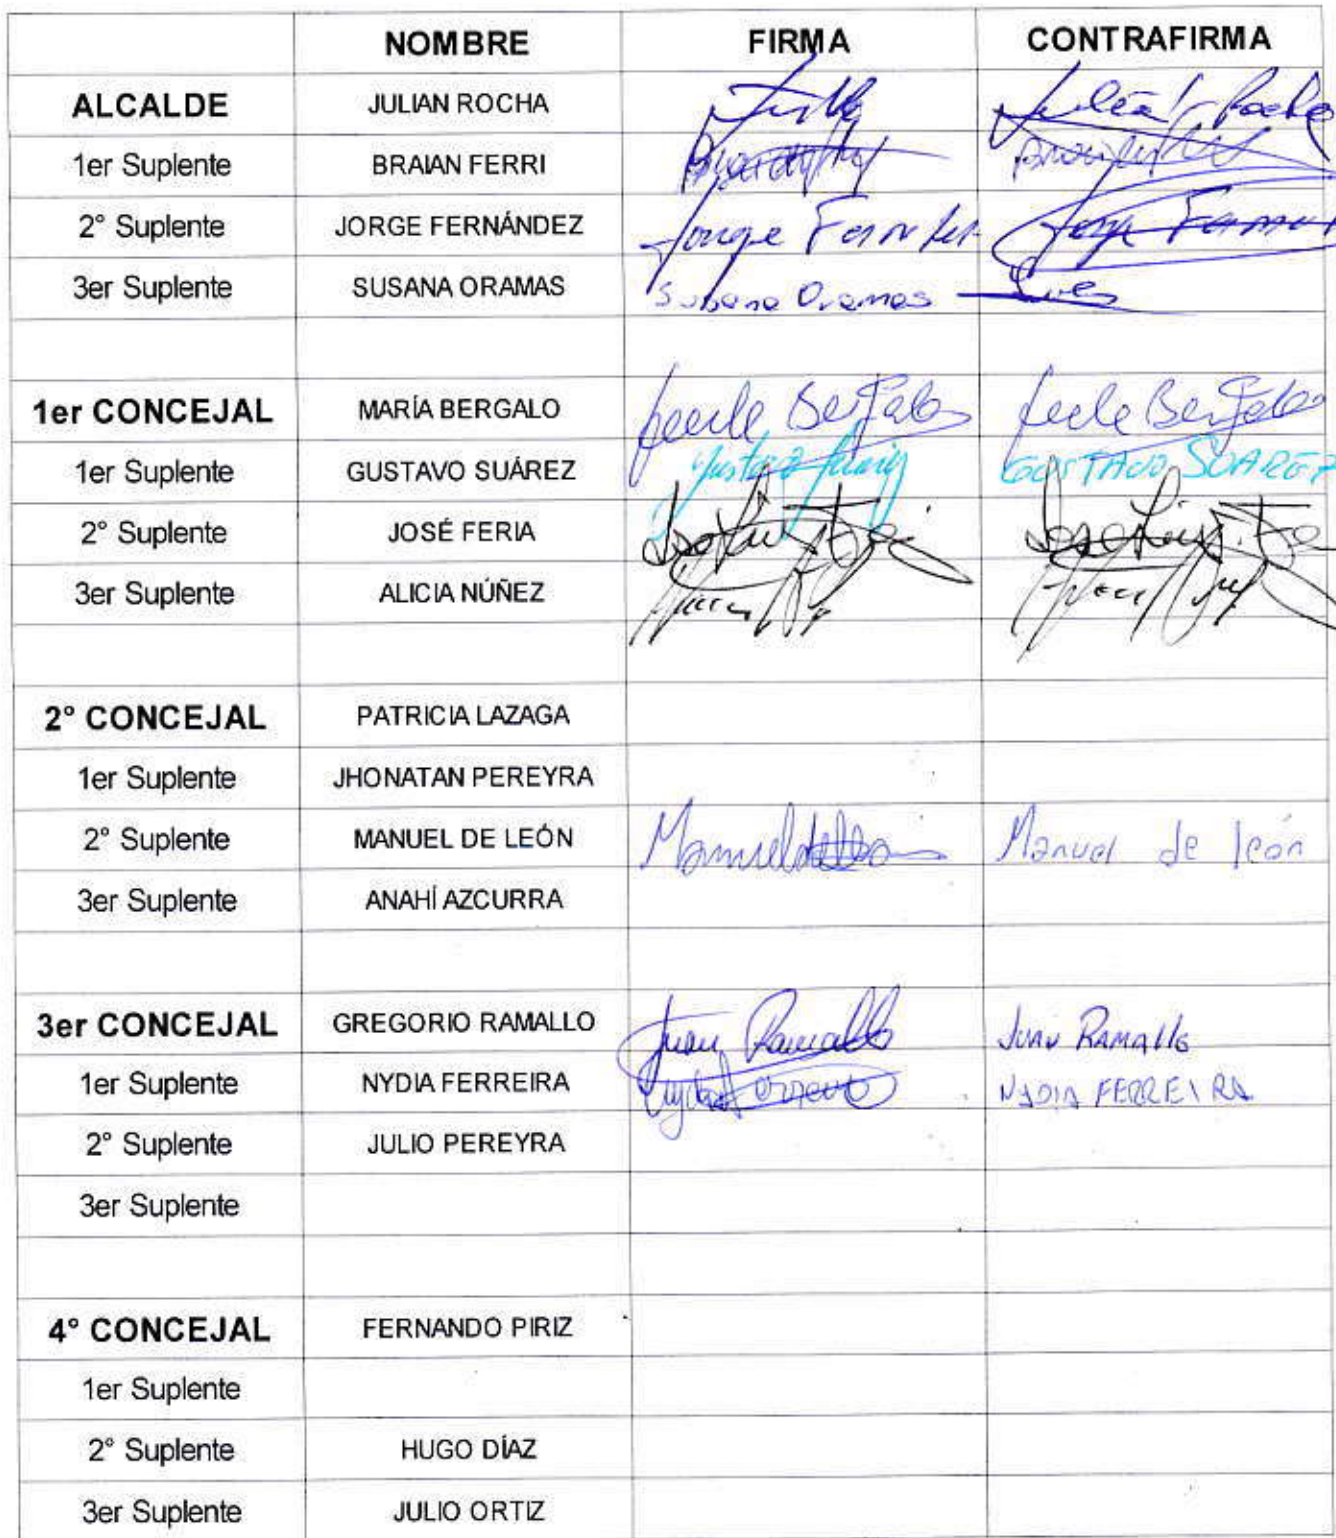 NOMBRE FIRMA CONTRAFIRMA
ALCALDE JULIAN ROCHA
1er Suplente BRAIAN FERRI
2° Suplente JORGE FERNÁNDEZ Jorge
3er Suplente SUSANA ORAMAS Susana Oramas
1er CONCEJAL MARÍA BERGALO
1er Suplente GUSTAVO SUÁREZ GUSTAVO SUAREZ
2° Suplente JOSÉ FERIA
3er Suplente ALICIA NÚÑEZ
2° CONCEJAL PATRICIA LAZAGA
1er Suplente JHONATAN PEREYRA
2° Suplente MANUEL DE LEÓN Manuel de león
3er Suplente ANAHÍ AZCURRA
3er CONCEJAL GREGORIO RAMALLO Juan Ramallo JUAN RAMALLO
1er Suplente NYDIA FERREIRA NYDIA FERREIRA
2° Suplente JULIO PEREYRA
3er Suplente
4° CONCEJAL FERNANDO PIRIZ
1er Suplente
2° Suplente HUGO DÍAZ
3er Suplente JULIO ORTIZ